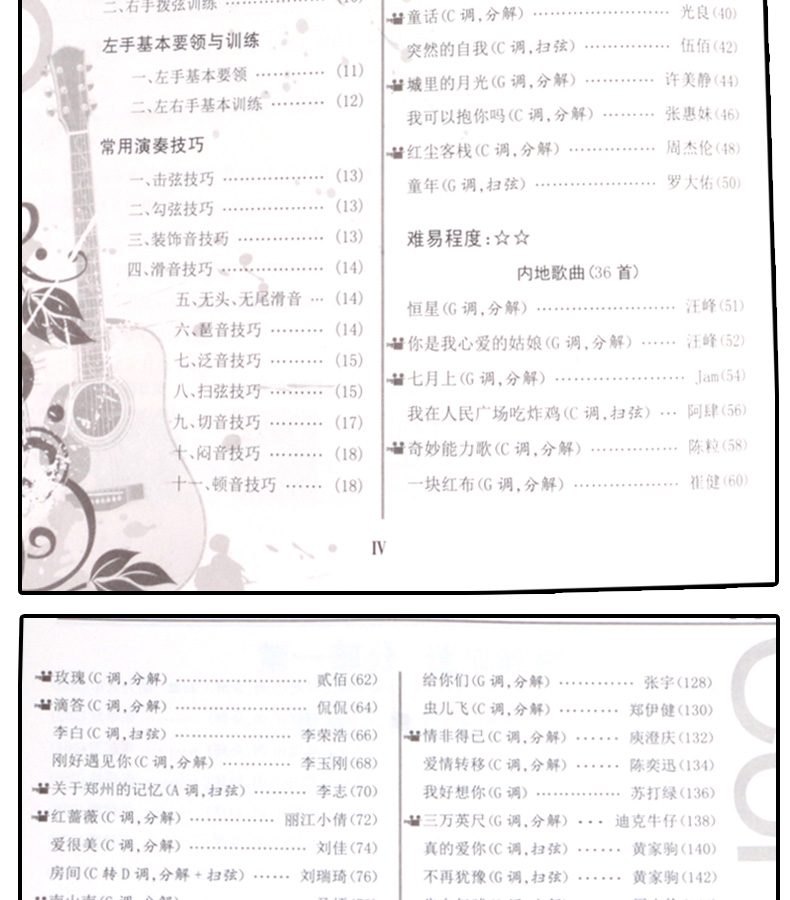 二、右手拨弦训练 ………… (10)
左手基本要领与训练
一、左手基本要领 ………… (11)
二、左右手基本训练 ……… (12)
常用演奏技巧
一、击弦技巧 ……………… (13)
二、勾弦技巧 ……………… (13)
三、装饰音技巧 …………… (13)
四、滑音技巧 ……………… (14)
五、无头、无尾滑音 … (14)
六、琶音技巧 ………… (14)
七、泛音技巧 ………… (15)
八、扫弦技巧 ………… (15)
九、切音技巧 ………… (17)
十、闷音技巧 ………… (18)
十一、顿音技巧 …… (18)
童话(C 调,分解) ………………… 光良(40)
突然的自我(C 调,扫弦) ………… 伍佰(42)
城里的月光(G 调,分解) ……… 许美静(44)
我可以抱你吗(C 调,分解) …… 张惠妹(46)
红尘客栈(C 调,分解) ………… 周杰伦(48)
童年(G 调,扫弦) ……………… 罗大佑(50)
难易程度:☆☆
内地歌曲(36 首)
恒星(G 调,分解) ……………… 汪峰(51)
你是我心爱的姑娘(G 调,分解) …… 汪峰(52)
七月上(G 调,分解) ……………… Jam(54)
我在人民广场吃炸鸡(C 调,扫弦) … 阿肆(56)
奇妙能力歌(C 调,分解) ………… 陈粒(58)
一块红布(G 调,分解) …………… 崔健(60)
IV
玫瑰(C 调,分解) ……………… 贰佰(62)
滴答(C 调,分解) ……………… 侃侃(64)
李白(C 调,扫弦) ……………… 李荣浩(66)
刚好遇见你(C 调,分解) ……… 李玉刚(68)
关于郑州的记忆(A 调,扫弦) …… 李志(70)
红蔷薇(C 调,分解) ………… 丽江小倩(72)
爱很美(C 调,分解) …………… 刘佳(74)
房间(C 转 D 调,分解 + 扫弦) …… 刘瑞琦(76)
给你们(G 调,分解) ………… 张宇(128)
虫儿飞(C 调,分解) ……… 郑伊健(130)
情非得已(C 调,分解) …… 庾澄庆(132)
爱情转移(C 调,分解) …… 陈奕迅(134)
我好想你(G 调) ………… 苏打绿(136)
三万英尺(G 调,分解) … 迪克牛仔(138)
真的爱你(C 调,扫弦) …… 黄家驹(140)
不再犹豫(G 调,扫弦) …… 黄家驹(142)